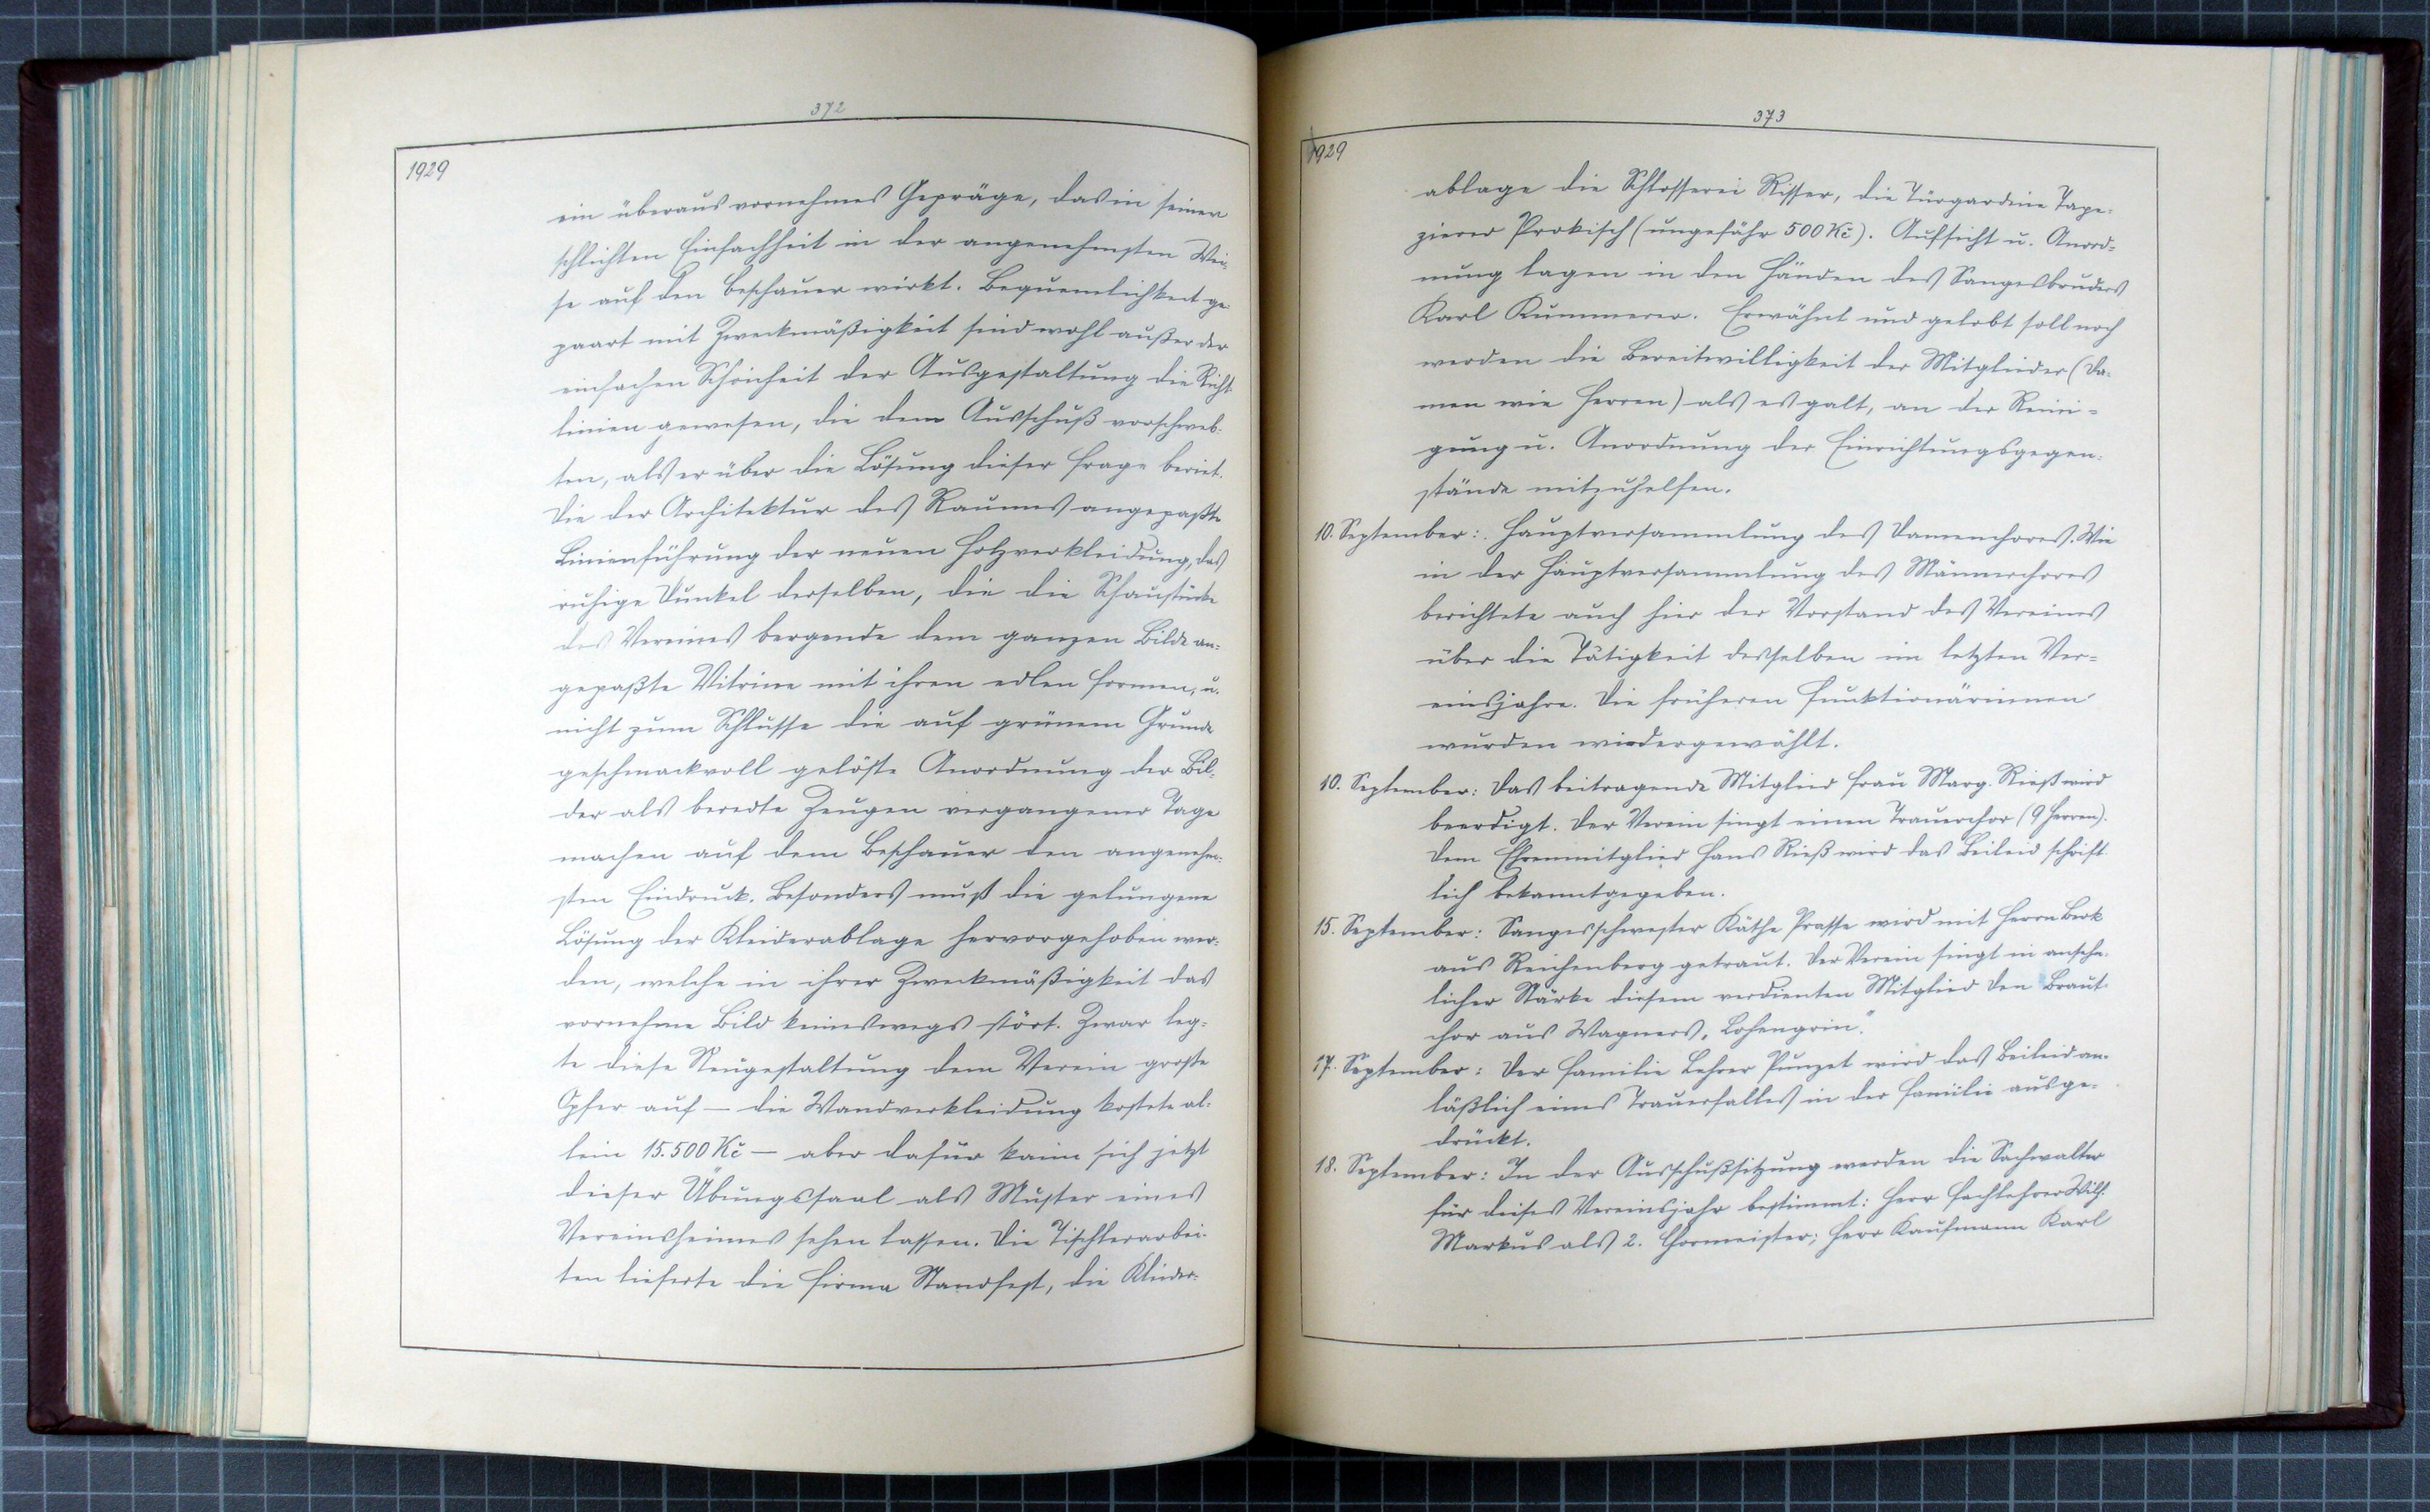 372
1929
ein überaus vornehmes Gepräge, das in seiner
schlichten Einfachheit in der angenehmsten Wei-
se auf den Beschauer wirkt. Bequemlichkeit ge-
paart mit Zweckmäßigkeit sind wohl außer der
einfachen Schönheit der Ausgestaltung die Richt-
linien gewesen, die dem Ausschuß vorschweb-
ten, als er über die Lösung dieser Frage beriet.
Die der Architektur des Raumes angepaßte
Linienführung der neuen Holzverkleidung, das
ruhige Dunkel derselben, die die Schaustücke
des Vereines bergende dem ganzen Bilde an-
gepaßte Vitrine mit ihren edlen Formen, u.
nicht zum Schlusse die auf grünem Grunde
geschmackvoll gelöste Anordnung der Bil-
der als beredte Zeugen vergangener Tage
machen auf dem Beschauer den angenehm-
sten Eindruck. Besonders muß die gelungene
Lösung der Kleiderablage hervorgehoben wer-
den, welche in ihrer Zweckmäßigkeit das
vornehme Bild keineswegs stört. Zwar leg-
te diese Neugestaltung dem Verein große
Opfer auf — die Wandverkleidung kostete al-
lein 15.500 Kč — aber dafür kann sich jetzt
dieser Übungssaal als Muster eines
Vereinsheimes sehen lassen. Die Tischlerarbei-
ten lieferte die Firma Standfest, die Kleider-
373
1929
ablage die Schlosserei Risser, die Türgardine Tape-
zierer Prokisch (ungefähr 500 Kč). Aufsicht u. Anord-
nung lagen in den Händen des Sangesbruders
Karl Kümmerer. Erwähnt und gelobt soll noch
werden die Bereitwilligkeit der Mitglieder (Da-
men wie Herren) als es galt, an der Reini-
gung u. Anordnung der Einrichtungsgegen-
stände mitzuhelfen.
10. September: Hauptversammlung des Damenchores. Wie
in der Hauptversammlung des Männerchores
berichtete auch hier der Vorstand des Vereines
über die Tätigkeit desselben im letzten Ver-
einsjahre. Die früheren Funktionärinnen
wurden wiedergewählt.
10. September: Das beitragende Mitglied Frau Marg. Rieß wird
beerdigt. Der Verein singt einen Trauerchor (9 Herren).
Dem Ehrenmitglied Hans Rieß wird das Beileid schrift-
lich bekanntgegeben.
15. September: Sangesschwester Käthe Prasse wird mit Herrn Berk
aus Reichenberg getraut. Der Verein singt in ansehn-
licher Stärke diesem verdienten Mitglied den Braut-
chor aus Wagners „Lohengrin".
17. September: Der Familie Lehrer Punzet wird das Beileid an-
läßlich eines Trauerfalles in der Familie ausge-
drückt.
18. September: In der Ausschußsitzung werden die Sachwalter
für dieses Vereinsjahr bestimmt: Herr Fachlehrer Wilh.
Markus als 2. Chormeister; Herr Kaufmann Karl